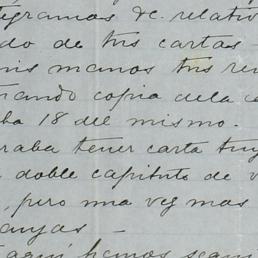 igramas &c. relativ
do de tus cartas —
mis manos tus re
mando copia de la c
ha 18 del mismo.
raba tener carta tuy
doble capitulo de v
, pero una vez mas
anzas —
aqui hemos segui